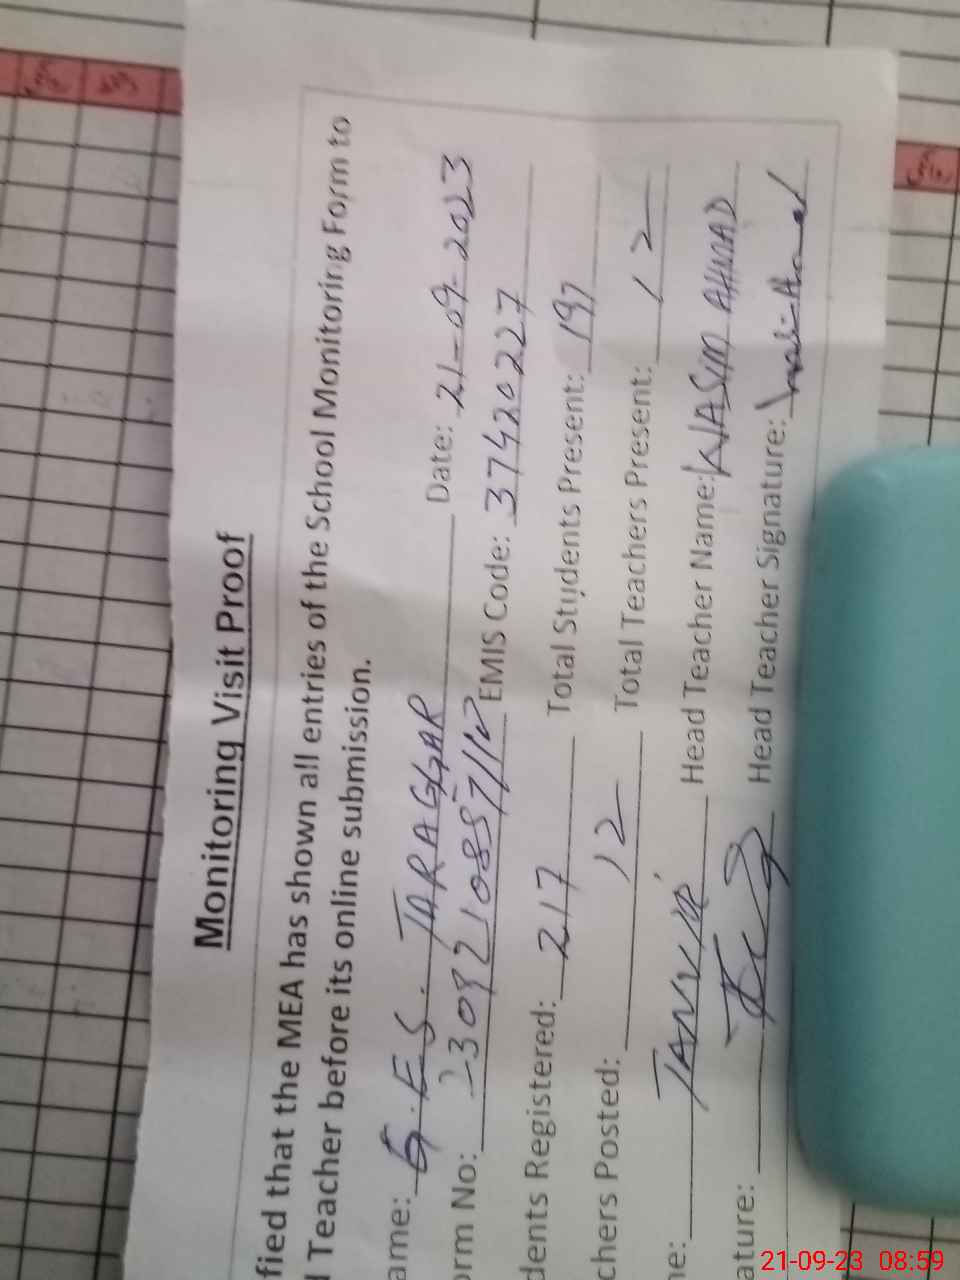 Monitoring Visit Proof
fied that the MEA has shown all entries of the School Monitoring Form to
Teacher before its online submission.
ame: G.E.S. TARAGGAR Date: 21-09-2023
orm No: EMIS Code: 37420227
dents Registered: 217 Total Students Present: 197
chers Posted: 12 Total Teachers Present: 12
me: TANVIR Head Teacher Name: NASIM AHMAD
ature: Head Teacher Signature:
21-09-23 08:59